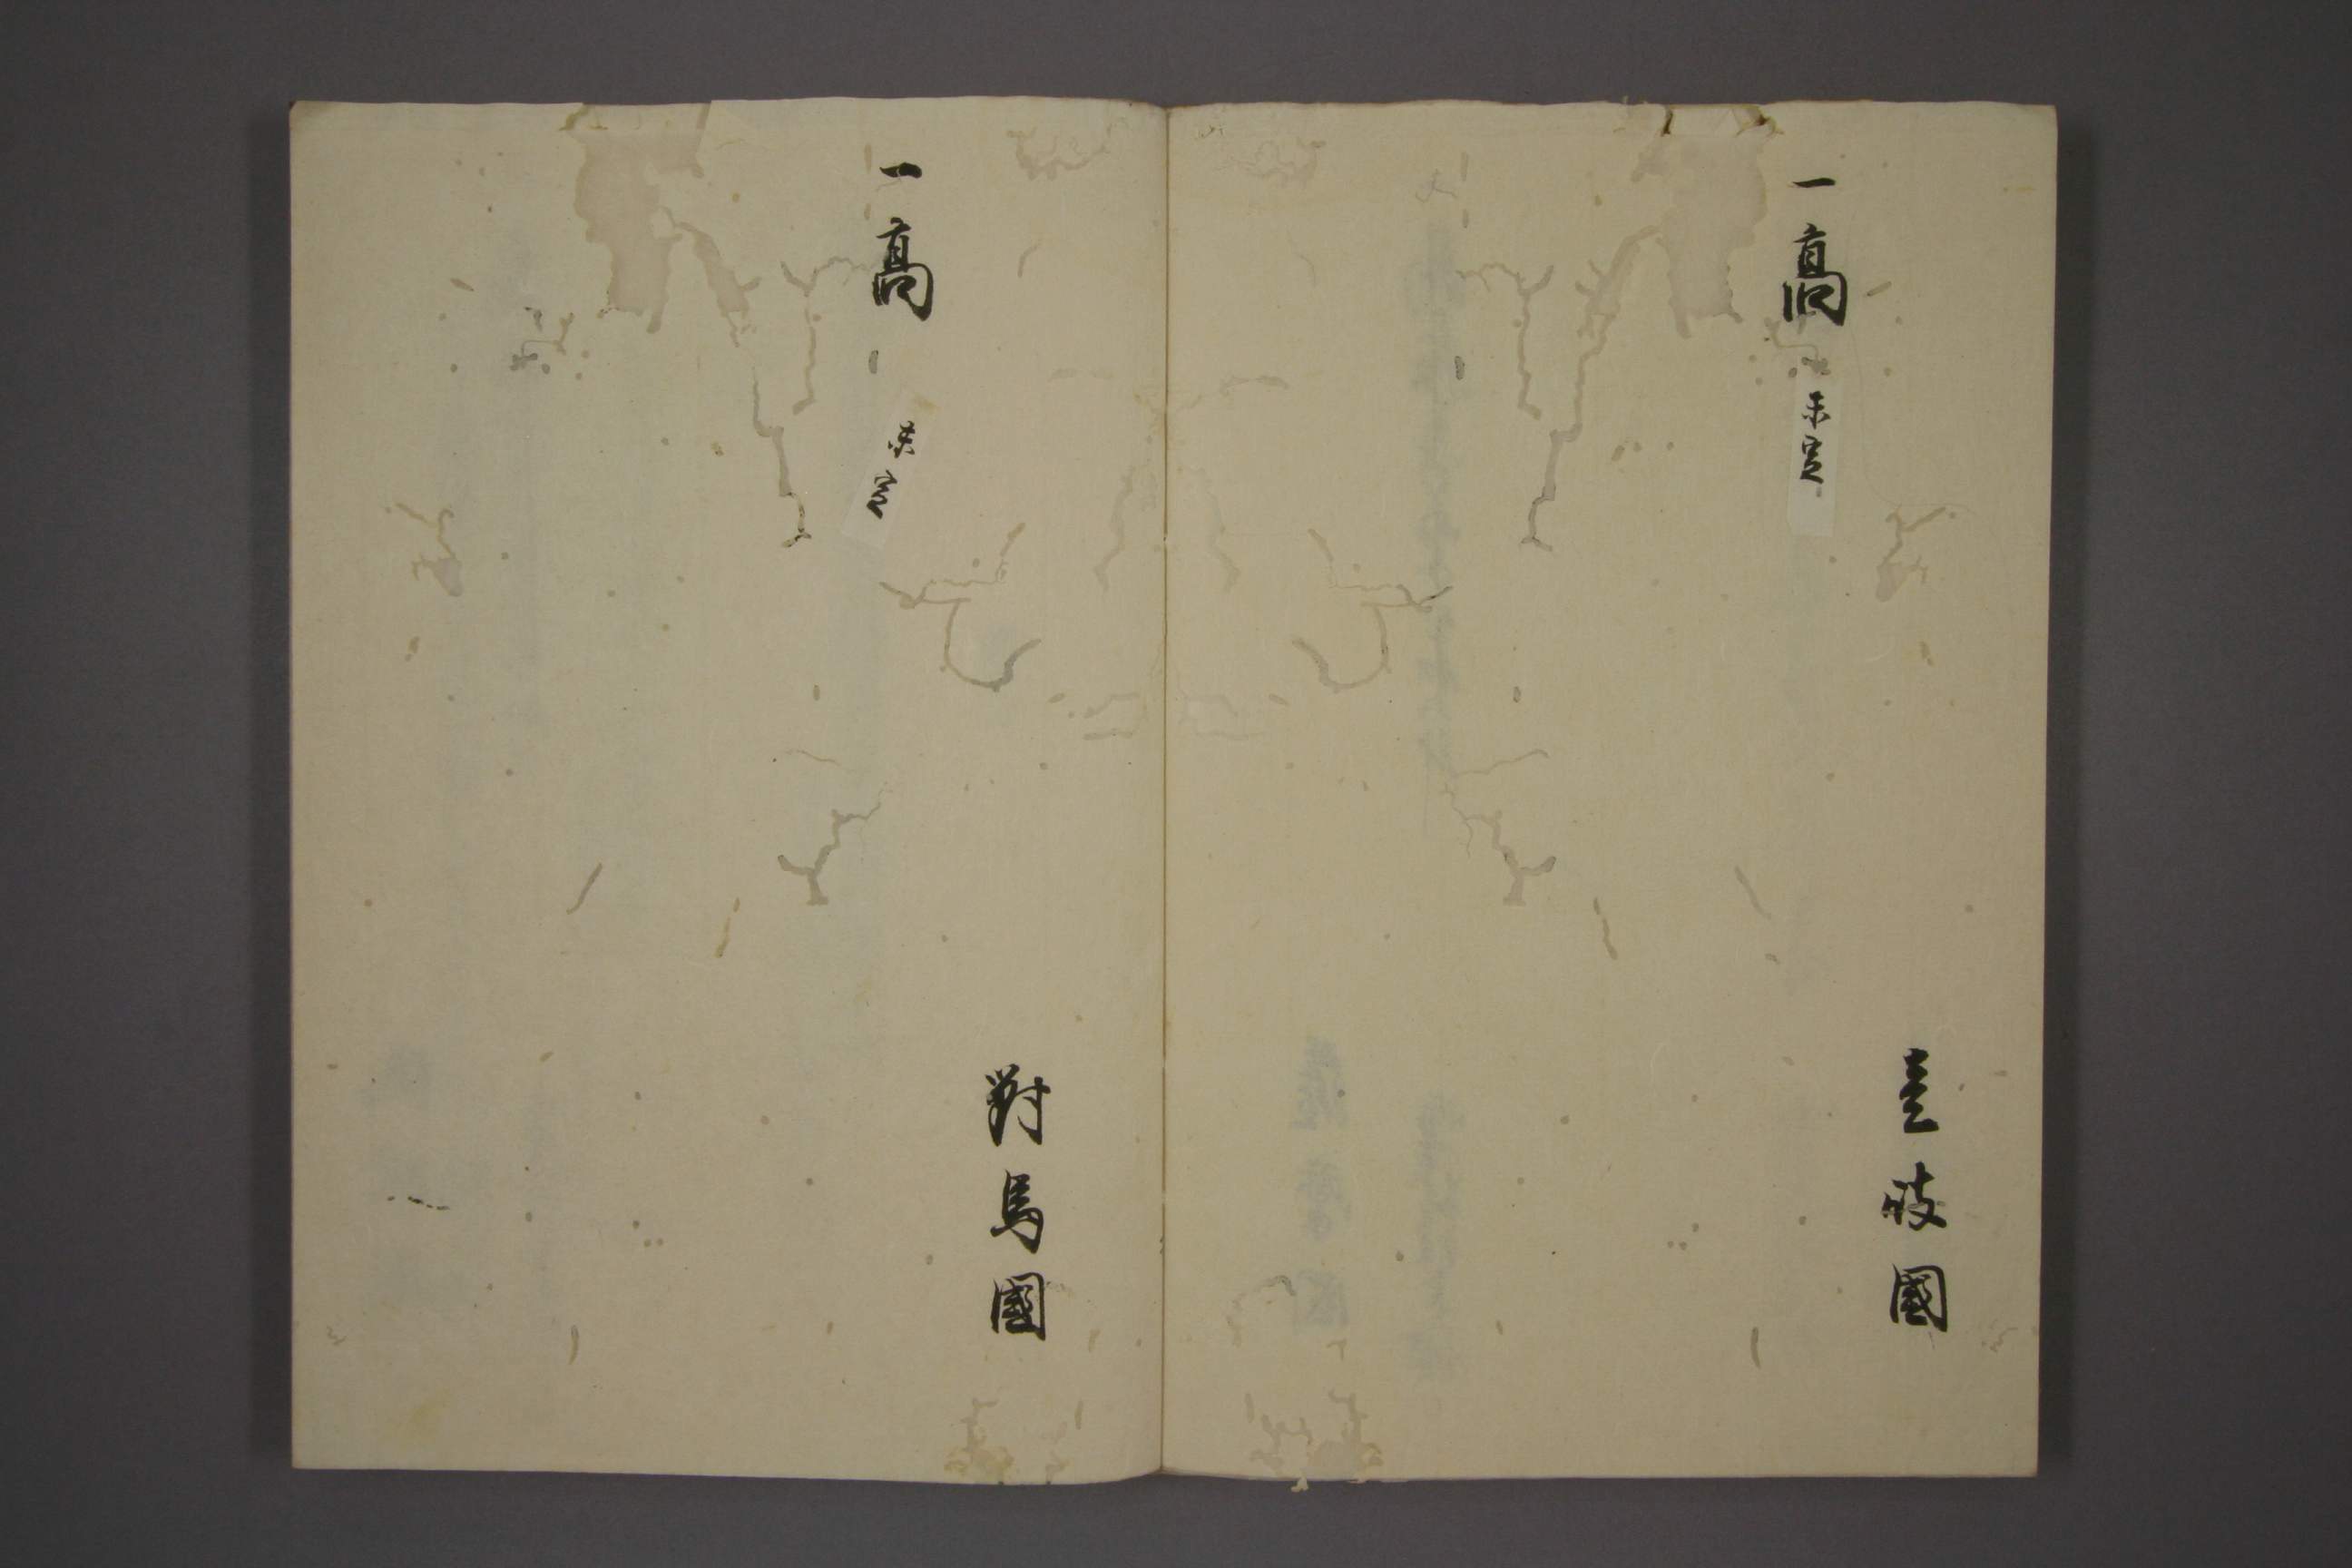 壹岐國
一髙
未定
對馬國
一髙
未定